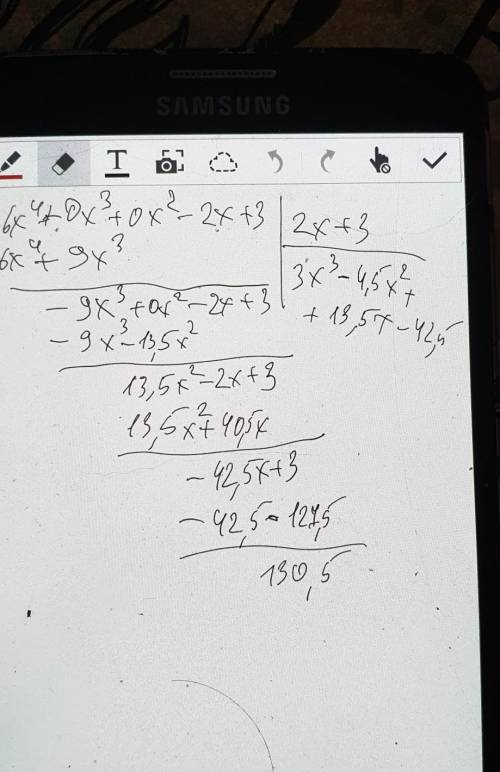 SAMSUNG
T
6x⁴+0x³+0x²-2x+3 | 2x+3
6x⁴+9x³
3x³-4,5x²+
+13,5x-42,5
-9x³+0x²-2x+3
-9x³-13,5x²
13,5x²-2x+3
13,5x²+40,5x
-42,5x+3
-42,5-127,5
130,5